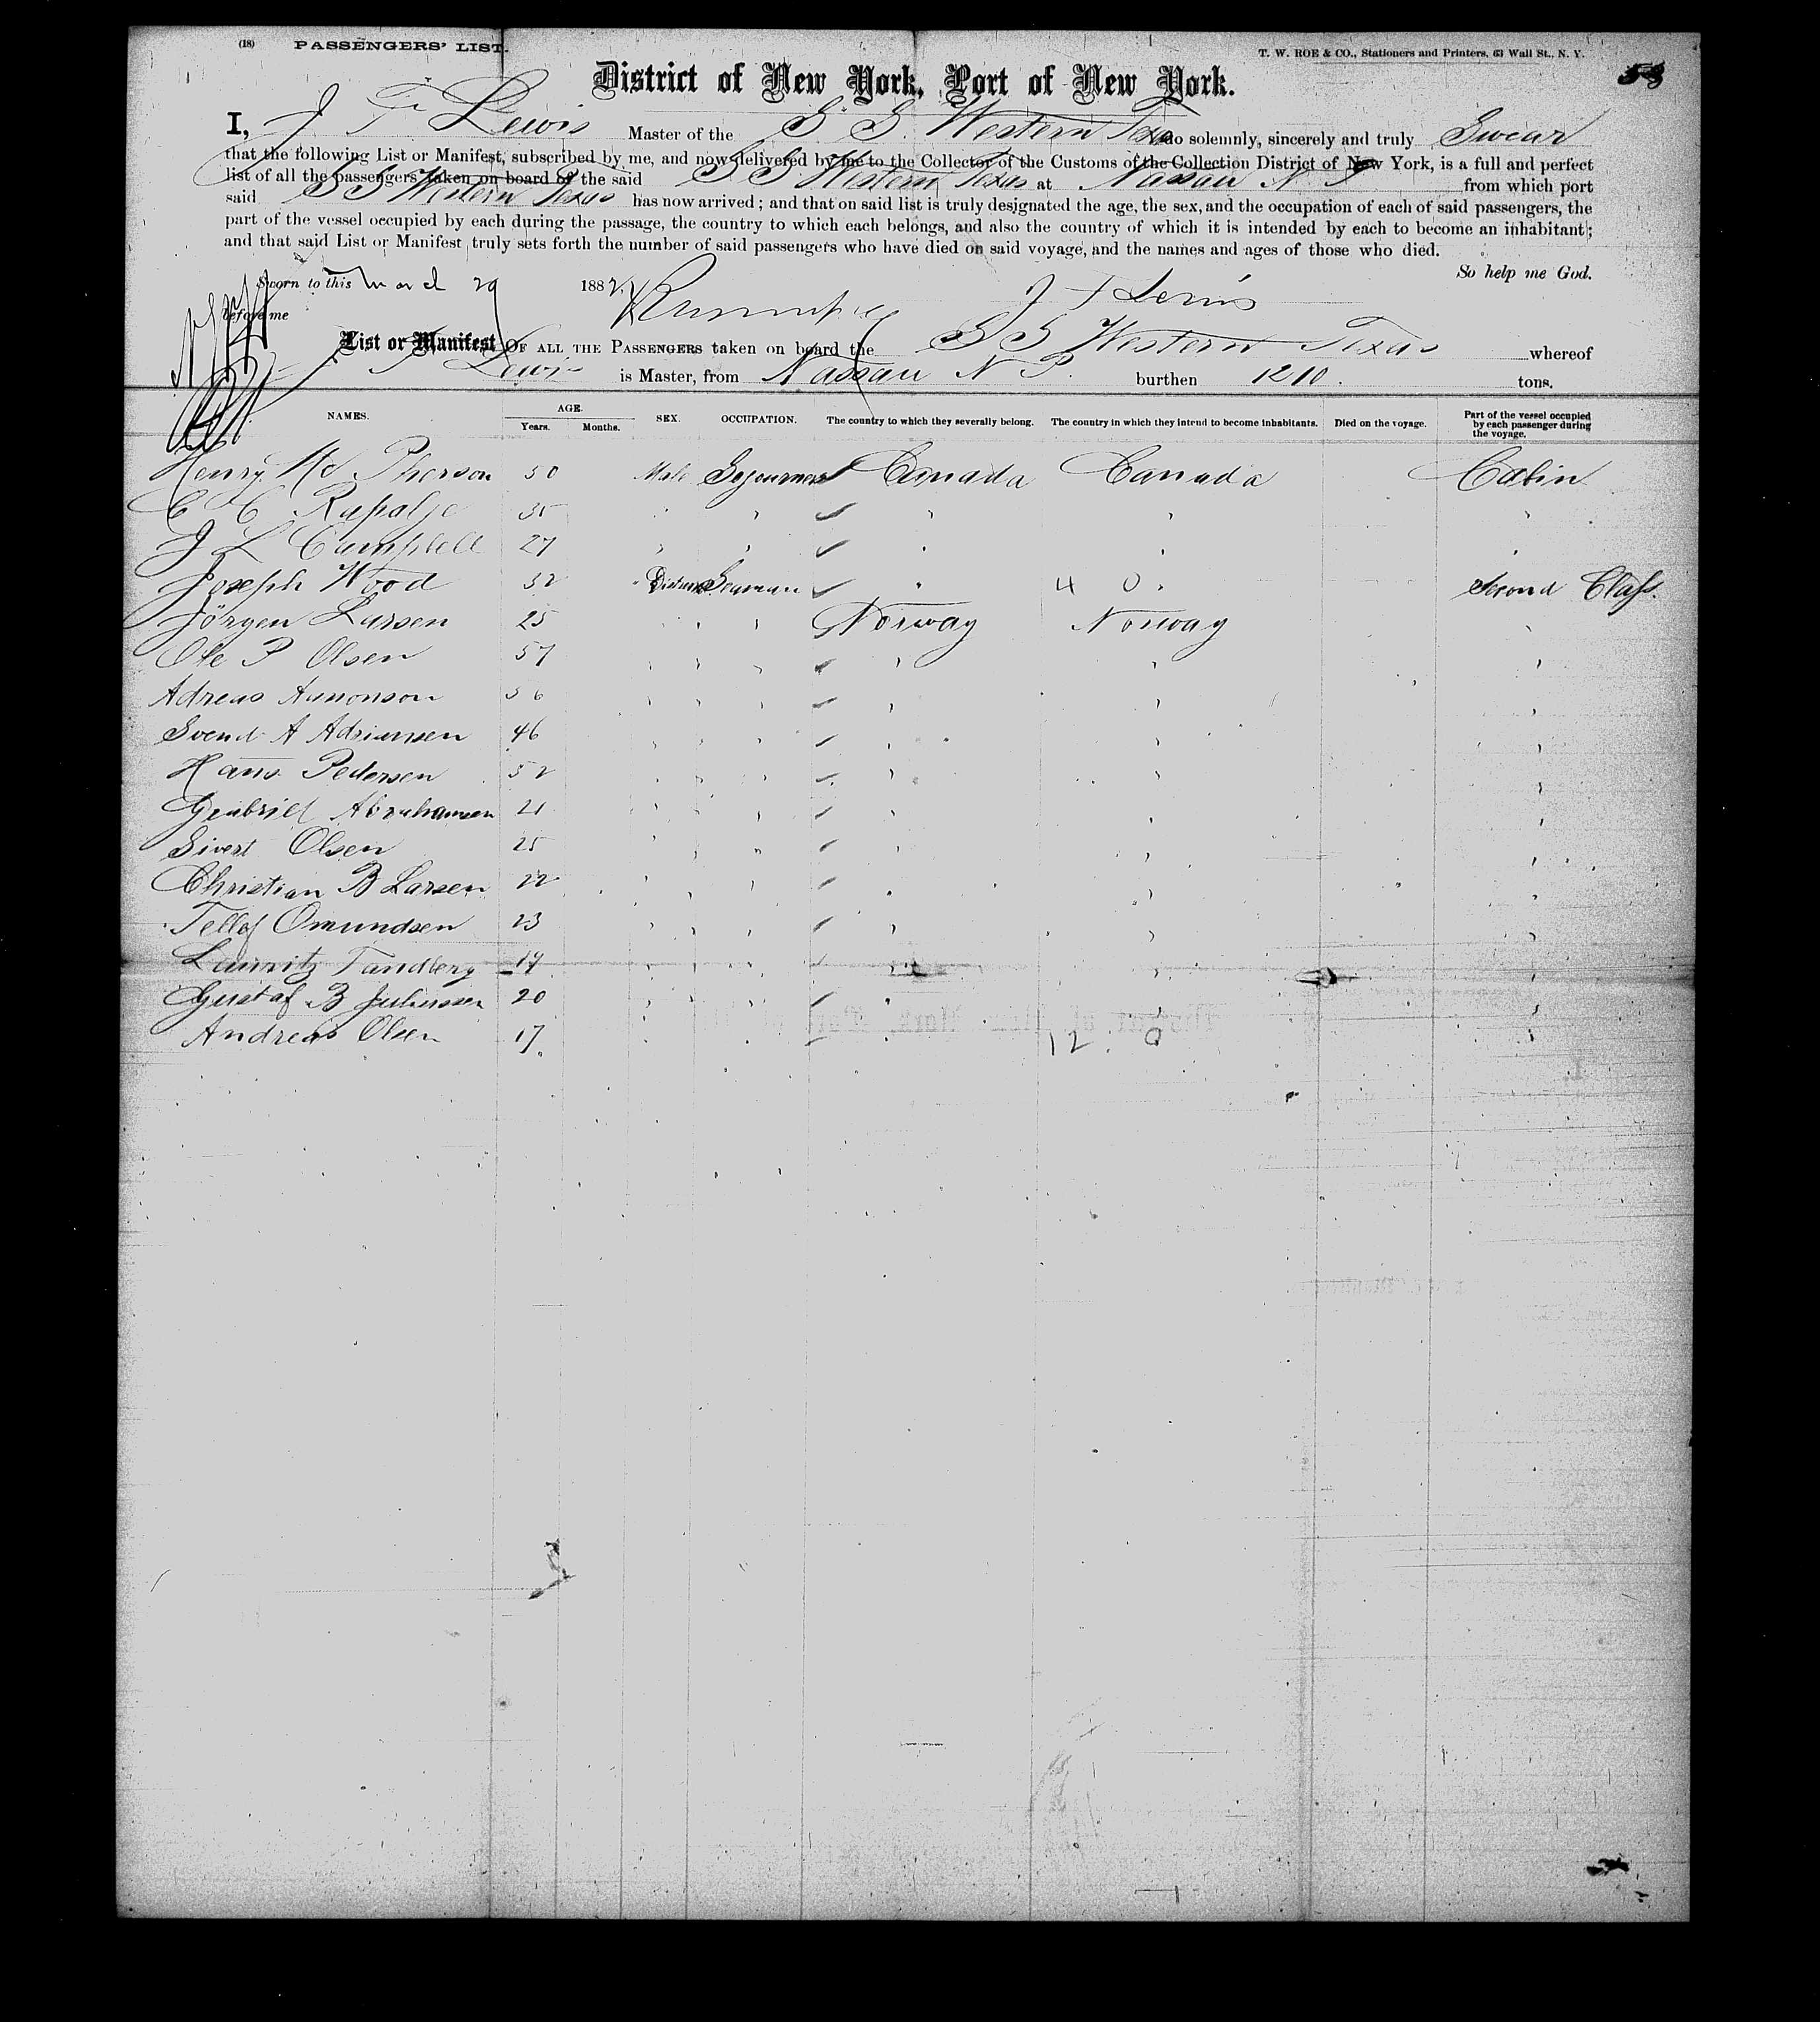 (18) PASSENGERS' LIST.
T. W. ROE & CO., Stationers and Printers, 63 Wall St., N. Y.
58
District of New York, Port of New York.
I, J T Lewis Master of the S S Western Texas do solemnly, sincerely and truly Swear
that the following List or Manifest, subscribed by me, and now delivered by me to the Collector of the Customs of the Collection District of New York, is a full and perfect
list of all the passengers taken on board of the said S S Western Texas at Nassau N P from which port
said S S Western Texas has now arrived; and that on said list is truly designated the age, the sex, and the occupation of each of said passengers, the
part of the vessel occupied by each during the passage, the country to which each belongs, and also the country of which it is intended by each to become an inhabitant;
and that said List or Manifest truly sets forth the number of said passengers who have died on said voyage, and the names and ages of those who died.
So help me God.
Sworn to this March 29 1882. J T Lewis
before me
List or Manifest OF ALL THE PASSENGERS taken on board the S S Western Texas whereof
J T Lewis is Master, from Nassau N. P. burthen 1210. tons.
NAMES. AGE. Years. Months. SEX. OCCUPATION. The country to which they severally belong. The country in which they intend to become inhabitants. Died on the voyage. Part of the vessel occupied by each passenger during the voyage.
Henry Mc Pherson 50 Male Sojourners Canada Canada Cabin
C C Rapalje 35 " " " " "
J L Campbell 27 " " " " "
Joseph Wood 32 " Seaman " 4 0. Second Class.
Jörgen Larsen 25 " " " Norway Norway "
Ole P Olsen 57 " " " " " "
Adreas Aanonson 56 " " " " " "
Svend A Adriansen 46 " " " " " "
Hans Pedersen 52 " " " " " "
Geabriel Abrahamsen 21 " " " " " "
Sivert Olsen 25 " " " " " "
Christian B Larsen 22 " " " " " "
Tellef Omundsen 23 " " " " " "
Lauritz Tandberg 19 " " " " " "
Gustaf B Juliussen 20 " " " " " "
Andreas Olsen 17. " " " " 12. 0 "